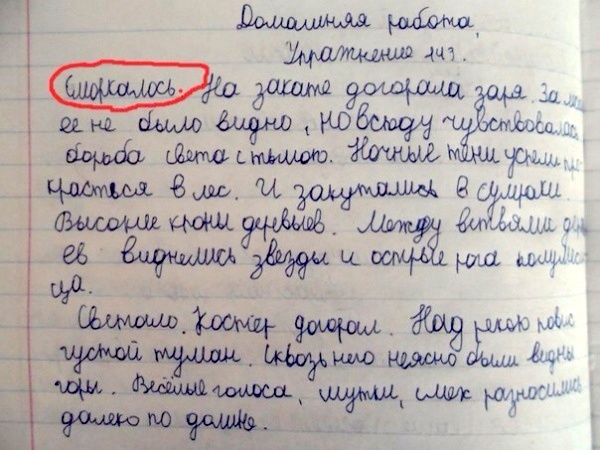 Домашняя работа,
Упражнение 143.
Сморкалось. На закате догорала заря. За
ее не было видно, но всюду чувствовалась
борьба света с тьмою. Ночные тени успели про-
красться в лес. И закутались в сумраки.
Высокие кроны деревьев. Между ветвями дерев
ев виднелись звезды и острые рога полумеся
ца.
Светало. Костёр догорал. Над рекою повис
густой туман. Сквозь него неясно были видны
горы. Весёлые голоса, шутки, смех разносились
далеко по долине.